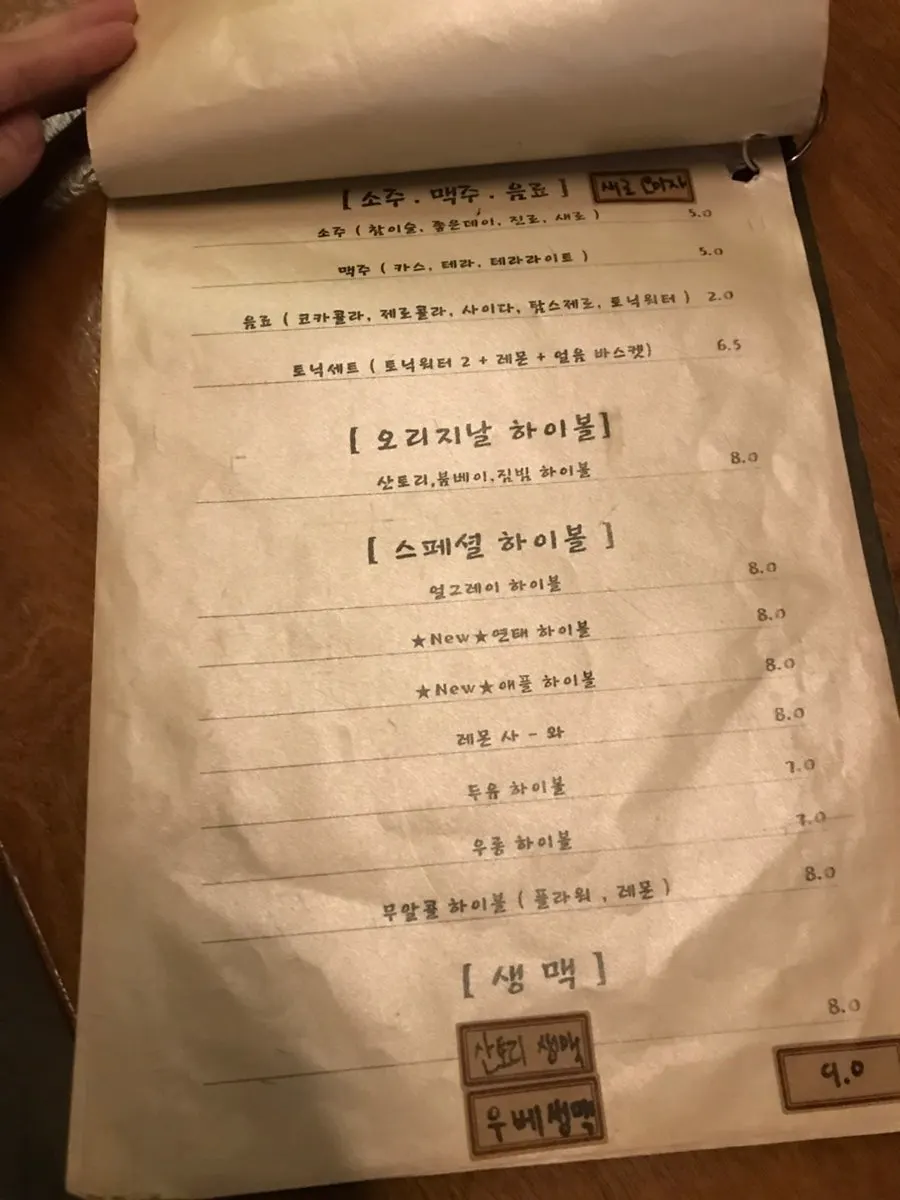 [ 소주 . 맥주 . 음료 ] 새로
소주 ( 참이슬, 좋은데이, 진로, 새로 ) 5.0
맥주 ( 카스, 테라, 테라라이트 ) 5.0
음료 ( 코카콜라, 제로콜라, 사이다, 탐스제로, 토닉워터 ) 2.0
토닉세트 ( 토닉워터 2 + 레몬 + 얼음 바스켓) 6.5
[ 오리지날 하이볼]
산토리,봄베이,짐빔 하이볼 8.0
[ 스페셜 하이볼 ]
얼그레이 하이볼 8.0
★New★연태 하이볼 8.0
★New★애플 하이볼 8.0
레몬 사 - 와 8.0
두유 하이볼 7.0
우롱 하이볼 7.0
무알콜 하이볼 ( 플라워 , 레몬 ) 8.0
[ 생 맥 ]
산토리 생맥 8.0
우베생맥 9.0